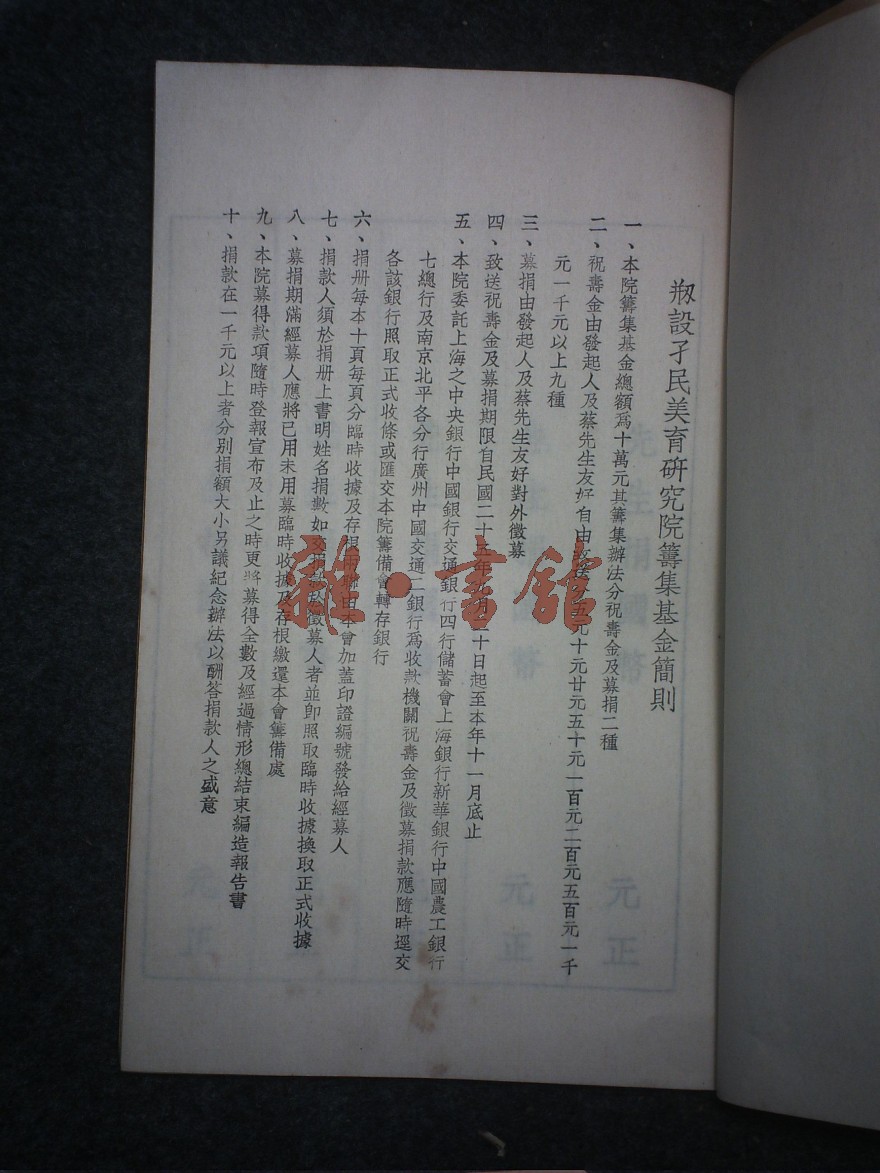 刱設孑民美育研究院籌集基金簡則
一、本院籌集基金總額爲十萬元其籌集辦法分祝壽金及募捐二種
二、祝壽金由發起人及蔡先生友好自由致送分五元十元廿元五十元一百元二百元五百元一千
元一千元以上九種
三、募捐由發起人及蔡先生友好對外徵募
四、致送祝壽金及募捐期限自民國二十五年九月二十日起至本年十一月底止
五、本院委託上海之中央銀行中國銀行交通銀行四行儲蓄會上海銀行新華銀行中國農工銀行
七總行及南京北平各分行廣州中國交通二銀行爲收款機關祝壽金及徵募捐款應隨時逕交
各該銀行照取正式收條或匯交本院籌備會轉存銀行
六、捐册每本十頁每頁分臨時收據及存根兩聯由本會加蓋印證編號發給經募人
七、捐款人須於捐册上書明姓名捐數如交捐款於徵募人者並卽照取臨時收據換取正式收據
八、募捐期滿經募人應將已用未用募臨時收據及存根繳還本會籌備處
九、本院募得款項隨時登報宣布及止之時更將募得全數及經過情形總結束編造報告書
十、捐款在一千元以上者分別捐額大小另議紀念辦法以酬答捐款人之盛意
雜·書館
元正
元正
元正